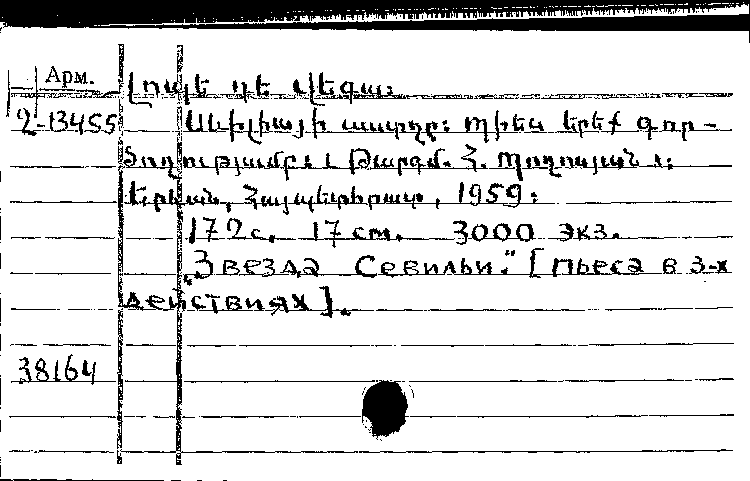 Арм.
Լոպե դե Վեգա։
2-13455
Սևիլիայի աստղը։ Պիես երեք գոր-
ծողությամբ։ Թարգմ. Հ. Պողոսյան։
Երևան, Հայպետհրատ, 1959։
172 с. 17 cm. 3000 экз.
„Звезда Севильи." [Пьеса в 3-х
действиях].
38164